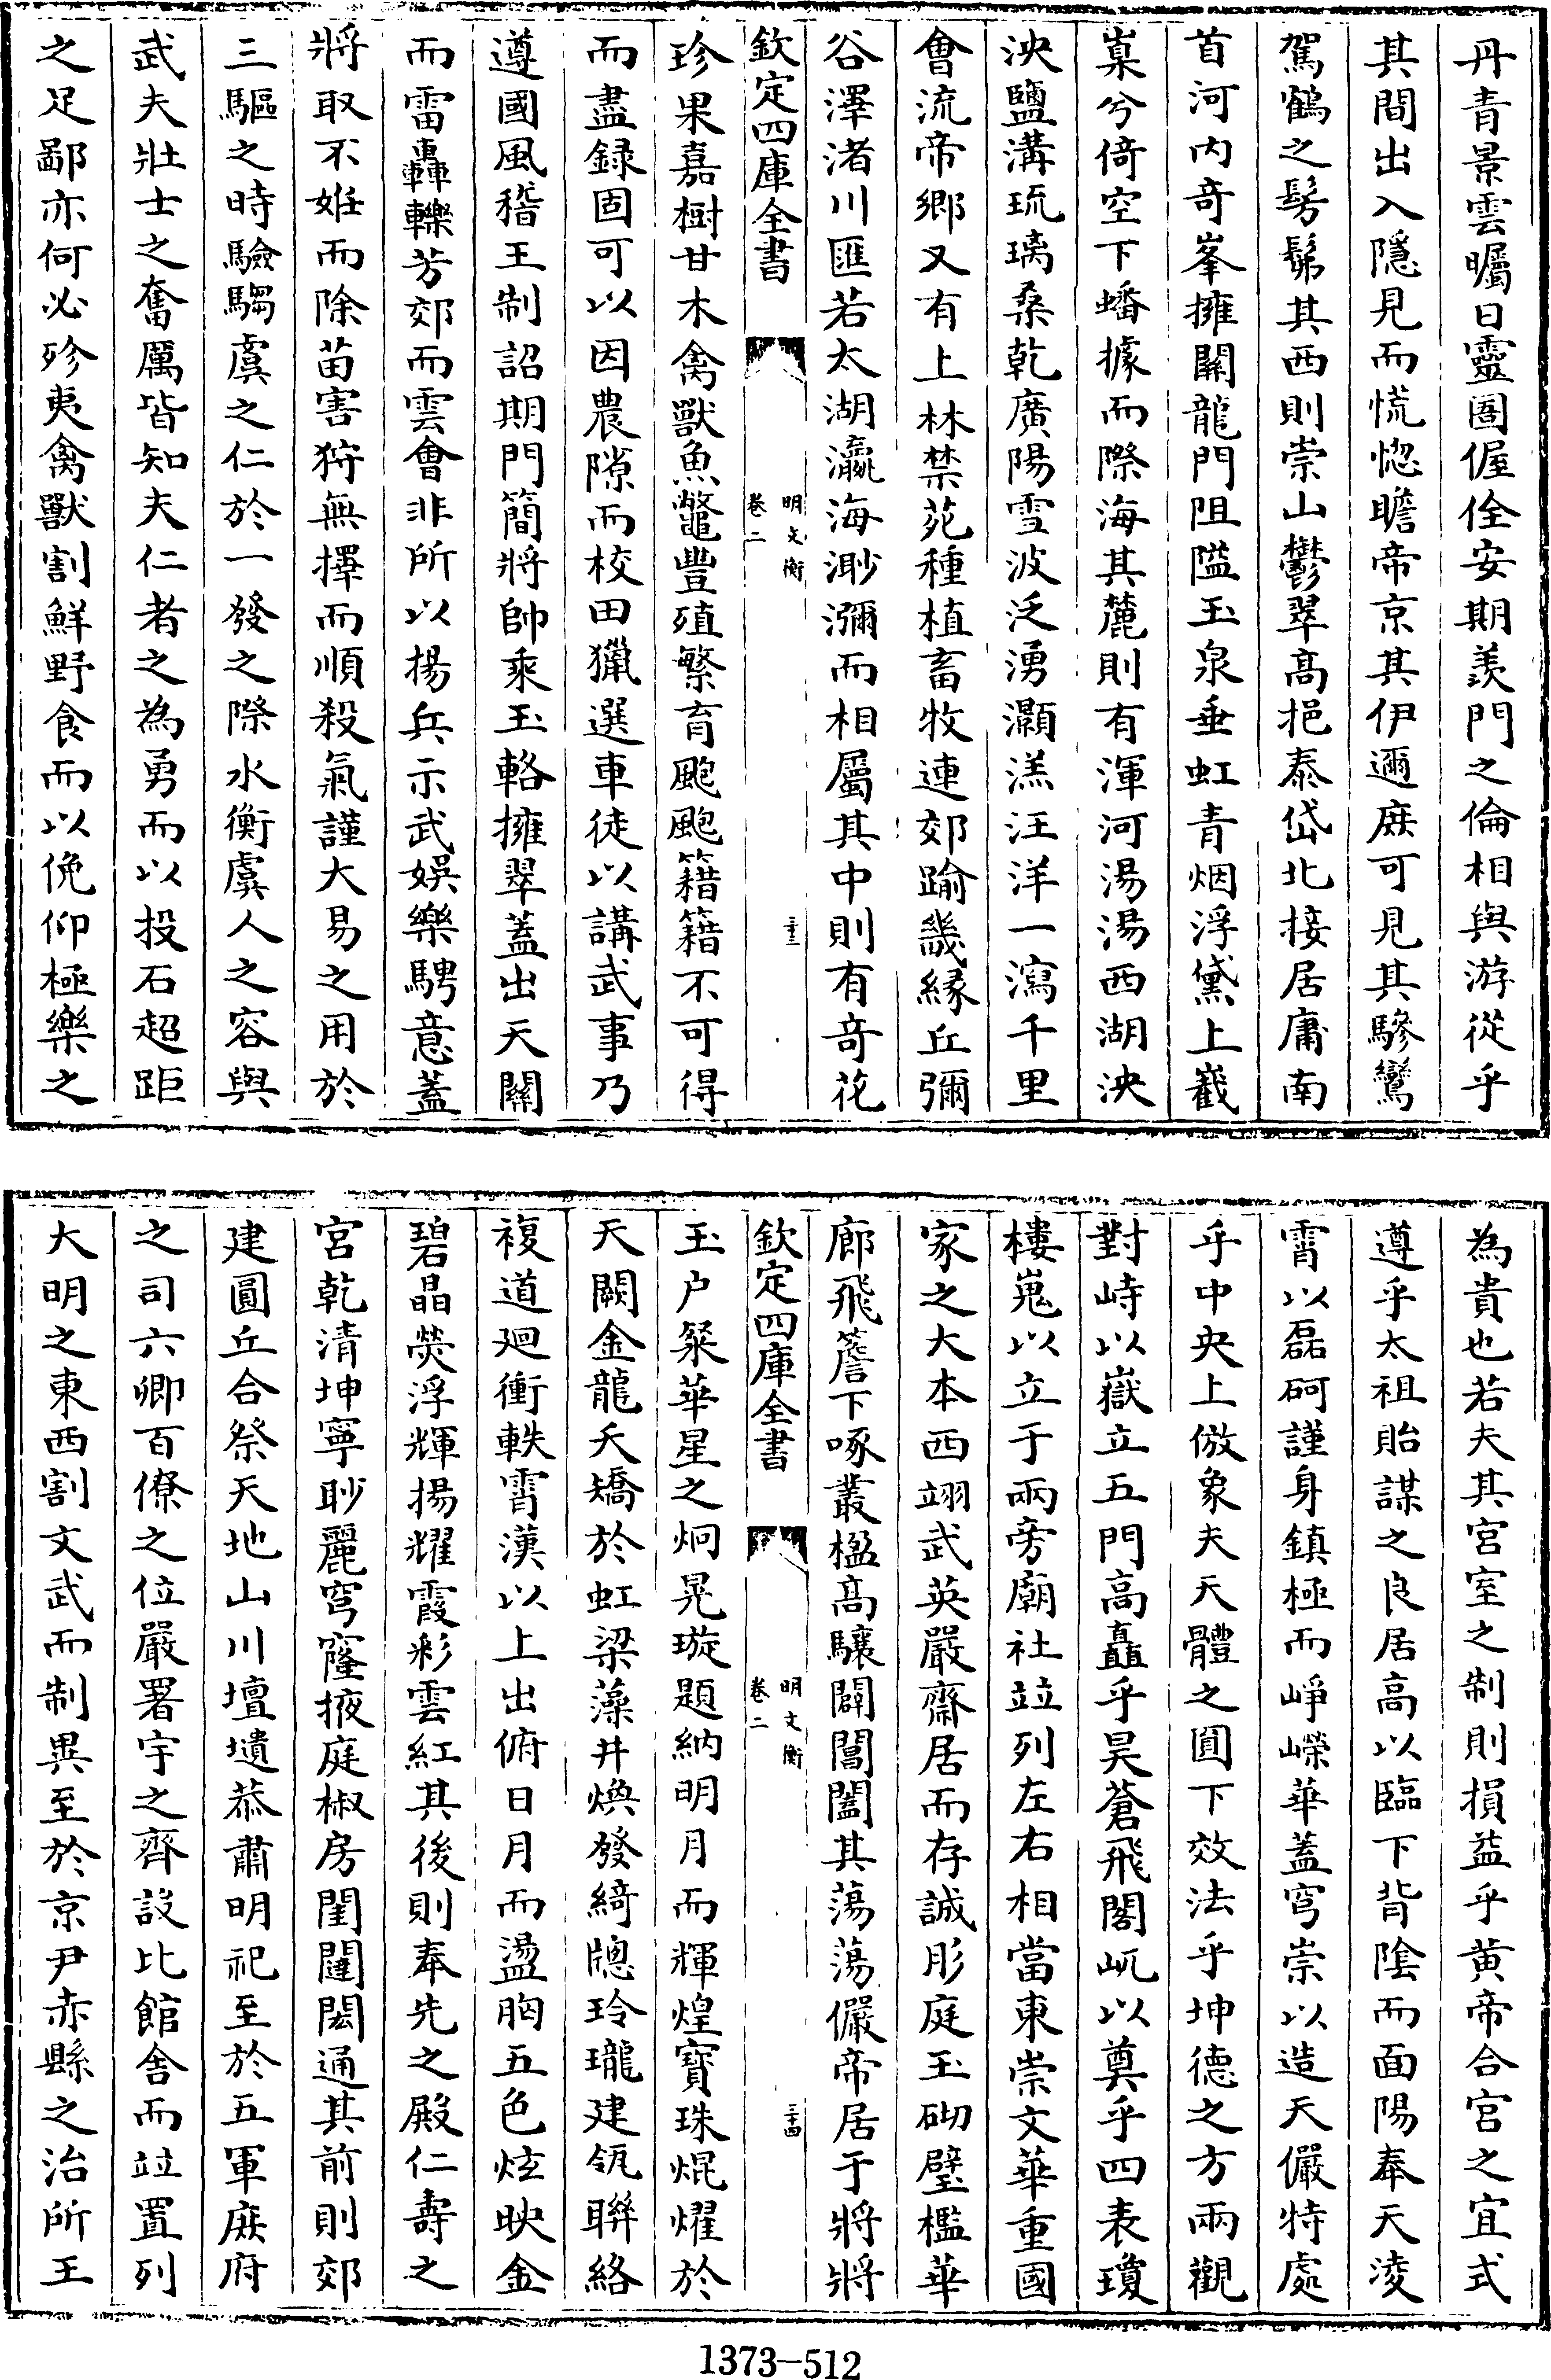 丹青景雲曯日靈圄偓佺安期羨門之倫相與游從乎
其間出入隱見而慌惚瞻帝京其伊邇庶可見其驂鸞
駕鶴之髣髴其西則崇山鬱翠高挹泰岱北接居庸南
首河内奇峯擁闗龍門阻隘玉泉垂虹青烟浮黛上截
窠兮倚空下蟠據而際海其麓則有渾河湯湯西湖泱
泱鹽溝琉璃桑乾廣陽雪波泛湧灝溔汪洋一瀉千里
會流帝鄉又有上林禁苑種植畜牧連郊踰畿縁丘彌
谷澤渚川匯若太湖瀛海渺瀰而相屬其中則有奇花
欽定四庫全書
明文衡
卷二
三十三
珍果嘉樹甘木禽獸魚鼈豐殖繁育颫颫籍籍不可得
而盡録固可以因農隙而校田獵選車徒以講武事乃
遵國風稽王制詔期門簡將帥乘玉輅擁翠蓋出天闗
而雷轟轢芳郊而雲會非所以揚兵示武娛樂騁意蓋
將取不姙而除苗害狩無擇而順殺氣謹大易之用於
三驅之時驗騶虞之仁於一發之際水衡虞人之容與
武夫壯士之奮厲皆知夫仁者之為勇而以投石超距
之足鄙亦何必殄夷禽獸割鮮野食而以俛仰極樂之
為貴也若夫其宮室之制則損益乎黄帝合宮之宜式
遵乎太祖貽謀之良居高以臨下背陰而面陽奉天淩
霄以磊砢謹身鎮極而崢嶸華蓋穹崇以造天儼特處
乎中央上倣象夫天體之圓下效法乎坤德之方兩觀
對峙以嶽立五門高矗乎昊蒼飛閣屼以奠乎四表瓊
樓嵬以立于兩旁廟社竝列左右相當東崇文華重國
家之大本西翊武英嚴齋居而存誠彤庭玉砌璧檻華
廊飛簷下啄叢楹高驤闢閶闔其蕩蕩儼帝居于將將
欽定四庫全書
明文衡
卷二
三十四
玉户粲華星之炯晃璇題納明月而輝煌寳珠焜燿於
天闕金龍夭矯於虹梁藻井煥發綺牕玲瓏建瓴聯絡
複道廻衝軼霄漢以上出俯日月而盪胸五色炫映金
碧晶熒浮輝揚耀霞彩雲紅其後則奉先之殿仁壽之
宮乾清坤寧眇麗穹窿掖庭椒房閨闥閎通其前則郊
建圓丘合祭天地山川壇壝恭肅明祀至於五軍庶府
之司六卿百僚之位嚴署宇之齊設比館舍而竝置列
大明之東西割文武而制異至於京尹赤縣之治所王
1373-512